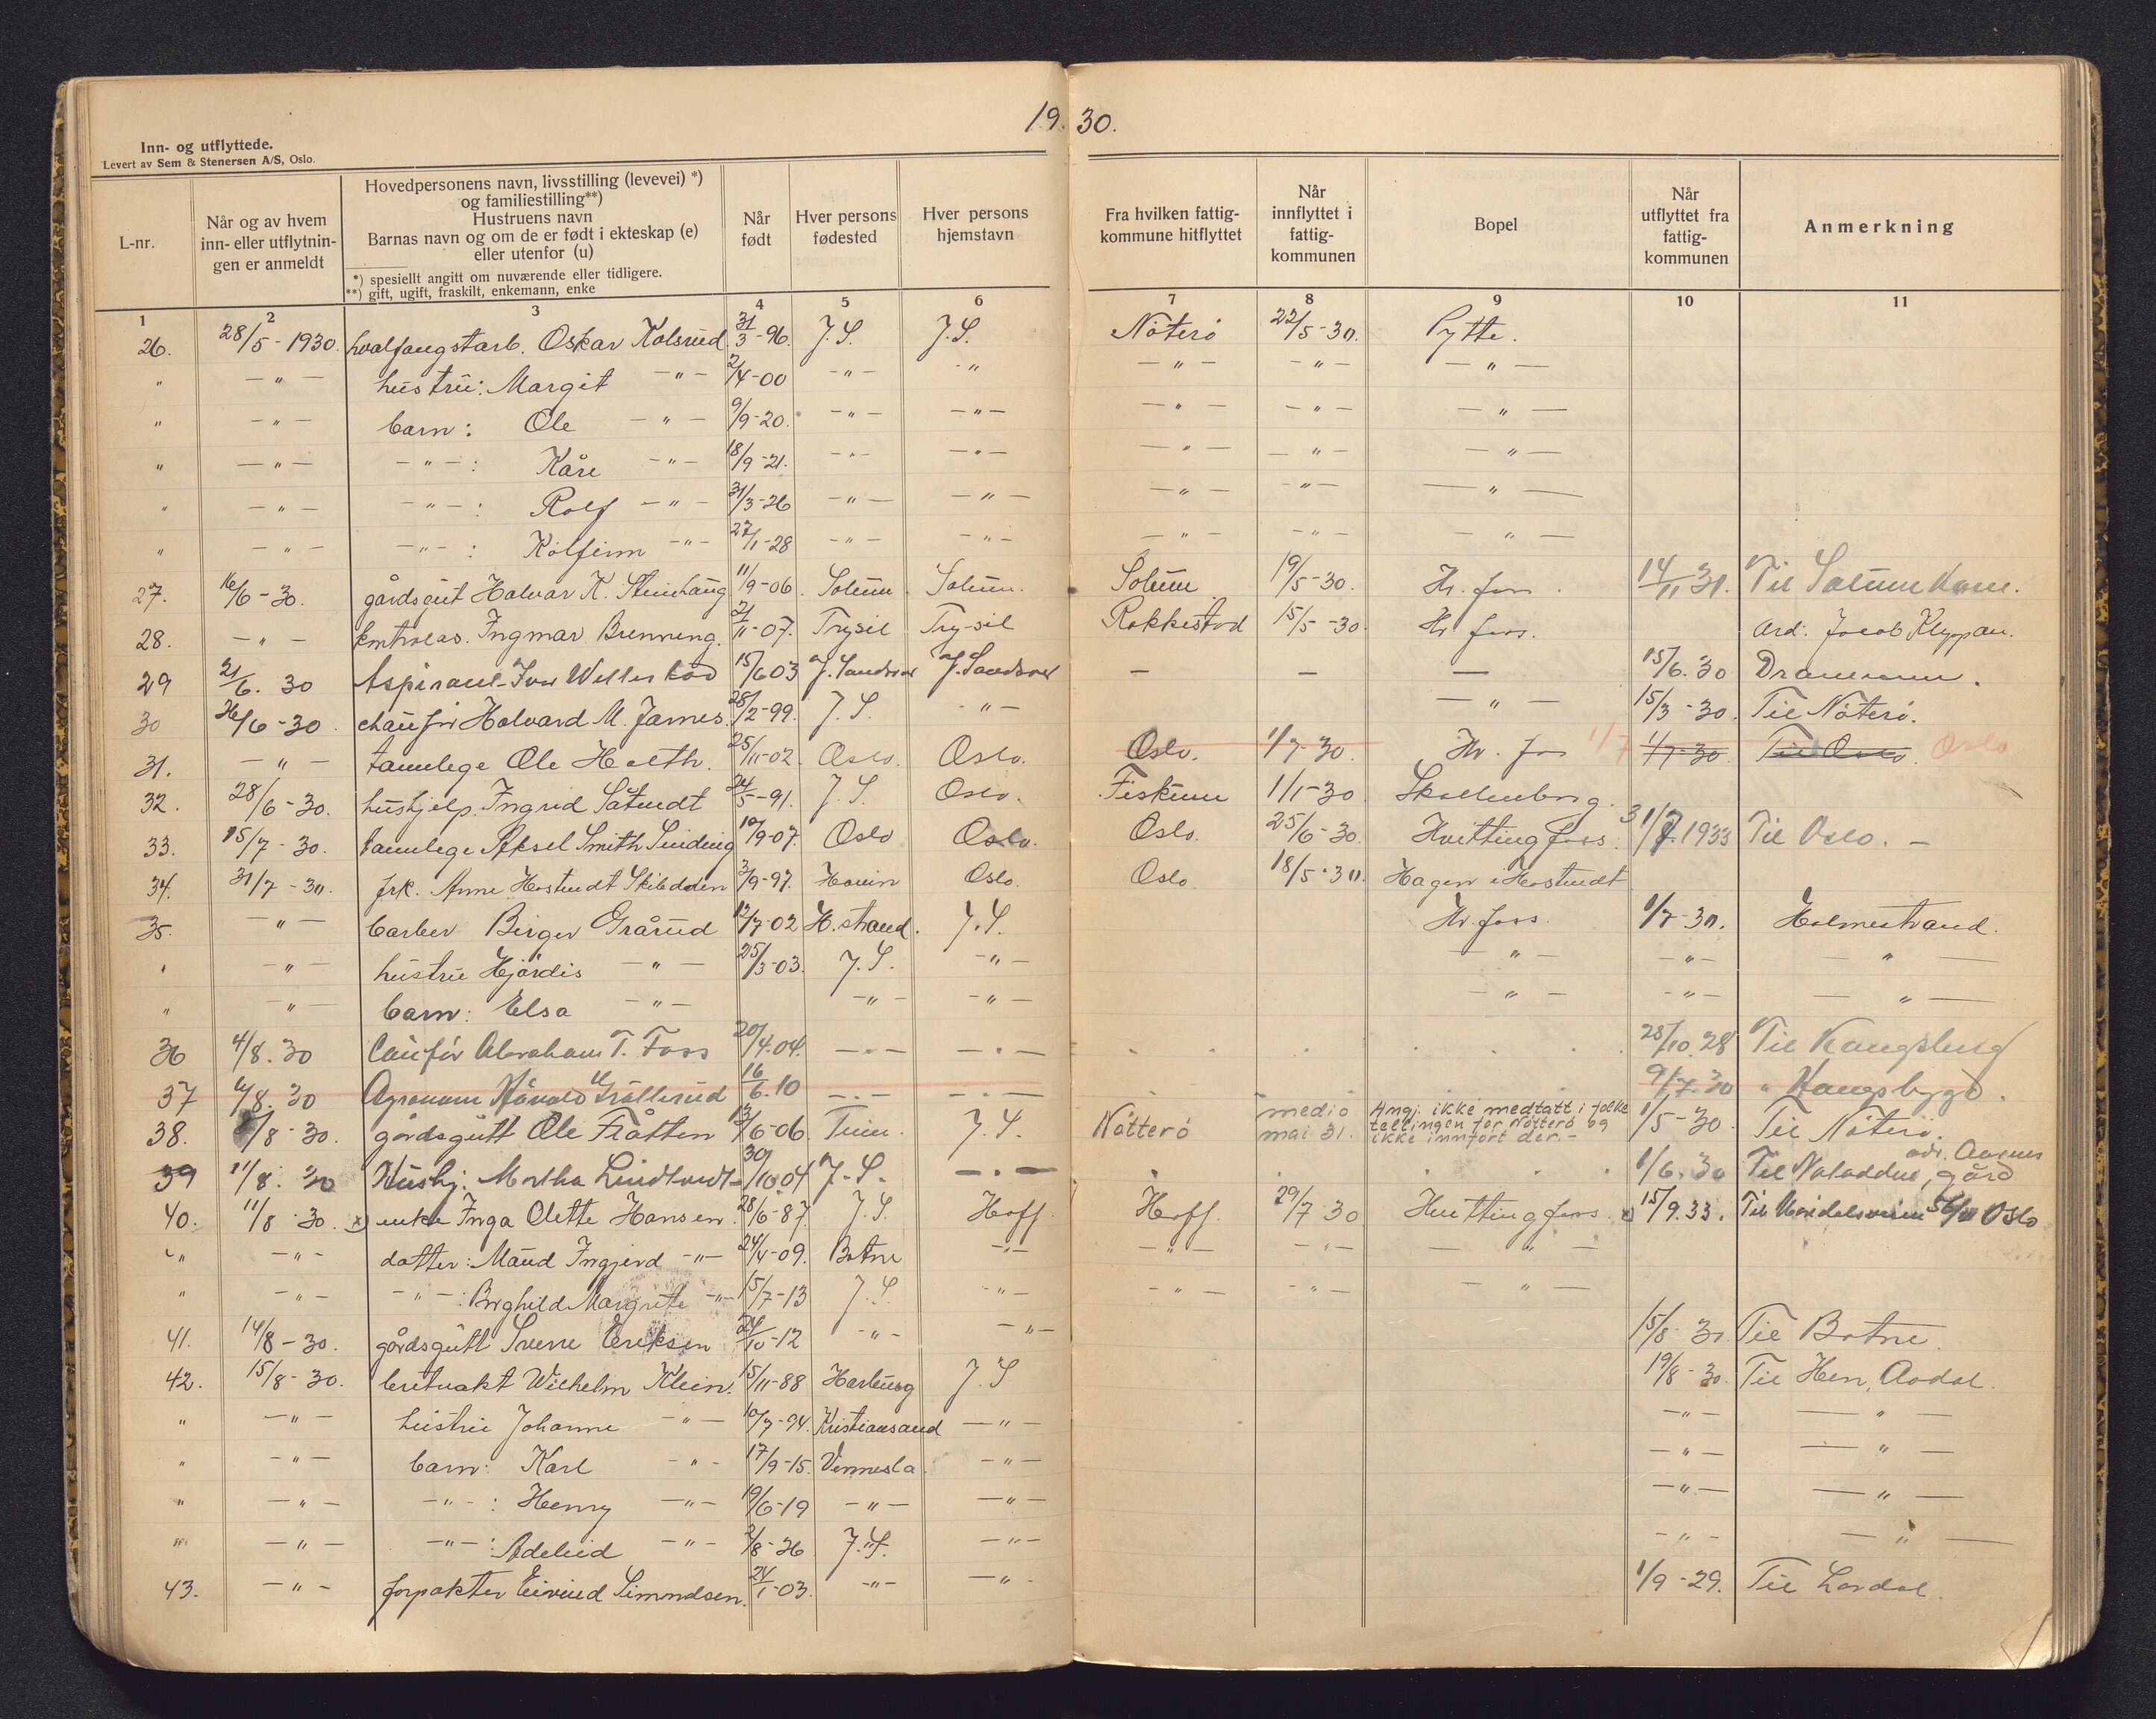 19.30.
Inn- og utflyttede.
Levert av Sem & Stenersen A/S, Oslo.
L-nr. | Når og av hvem inn- eller utflytningen er anmeldt | Hovedpersonens navn, livsstilling (levevei) *) og familiestilling**) Hustruens navn Barnas navn og om de er født i ekteskap (e) eller utenfor (u) *) spesiellt angitt om nuværende eller tidligere. **) gift, ugift, fraskilt, enkemann, enke | Når født | Hver persons fødested | Hver persons hjemstavn | Fra hvilken fattigkommune hitflyttet | Når innflyttet i fattigkommunen | Bopel | Når utflyttet fra fattigkommunen | Anmerkning
1 2 3 4 5 6 7 8 9 10 11
26. 28/5-1930. hvalfangstarb. Oskar Kolsrud 31/3-96. J.S. J.S. Nøterø 22/5-30. Pytte.
" -"- hustru: Margit -"- 2/4-00 -"- -" -"- -"- -"-
" -"- barn: Ole -"- 9/9-20. -"- -"- -"- -"- -"-
" -"- -"-: Kåre -"- 18/9-21. -"- -"- -"- -"- -"-
" -"- -"-: Rolf -"- 31/3-26 -"- -"- -"- -"- -"-
" -"- -"-: Kolfinn -"- 27/1-28 -"- -"- -"- -"- -"-
27. 16/6-30. gårdsgut Halvar K. Steinhaug 11/9-06. Solum Solum. Solum 19/5-30. Hv. foss. 14/11 31. Til Solum Kom.
28. -"- kontrolas. Ingmar Brenneng. 21/11-07. Trysil Try-sil Rakkestad 15/5-30 Hv foss. Ard. Jacob Klyppan.
29 21/6. 30 Aspirant Ivar 15/6 03 J. Sandsvær J. Sandsvær - - - 15/6.30 Drammen.
30 26/6-30. chaufør Halvard M. James. 28/2-99. J.S. -"- -"- 15/3-30. Til Nøterø.
31. -"- tannlege Ole Holth. 25/11-02. Oslo. Oslo. Oslo. 1/7-30. Hv. foss 1/7 1/7-30. Til Oslo. Oslo
32. 28/6-30. hushjelp. Ingrid Såtvedt 24/5-91. J.S. Oslo. Fiskum 1/1-30 Skollenborg.
33. 15/7-30. tannlege Aksel Smith Sinding 10/9-07. Oslo Oslo. Oslo. 25/6-30. Hvittingfoss. 31/7.1933 Til Oslo. -
34. 31/7-30. frk. Anne Hostvedt Skibdalen 3/9-97. Hovin Oslo. Oslo 18/5-30. Hagen i Hostvedt
35. -"- barber Birger Grårud 12/7-02 H.strand. J.S. Hv. foss. 1/7-30. Holmestrand.
" -"- hustru Hjørdis -"- 25/3-03. J.S. -"- -"- -"- -"-
" -"- barn: Elsa -"- -"- -"- -"- -"- -"-
36 4/8. 30 Caufør Abraham T. Foss 20/4.04. -"- -"- 28/10.28 Til Kongsberg
37 6/8. 30 Agronom Håvald Grållerud 16/6.10 -"- -"- 9/7.30 "
38. 8/8-30. gårdsgutt Ole Flåtten 13/6-06. Tuun. J.S. Nötterö medio mai 31. Angj. ikke medtatt i folketellingen for Nötterö og ikke innført der.- 1/5-30. Til Nøterø.
39 11/8. 30 Hushj. Martha Lindtvedt 30/10.04 J.S. -"- 1/6.30 Til gård
40. 11/8-30. x) enke Inga Olette Hansen. 28/6-87. J.S. Hoff Hoff. 29/7-30 Hvittingfoss. x) 15/9.33. Til Oslo
" -"- datter: Maud Ingjerd -"- 24/4-09. Botne -"- -"- -"- -"-
" -"- -"-: Borghild Margrete -"- 15/7-13 J.S. -"- -"- -"- -"-
41. 14/8-30. gårdsgutt Sverre Eriksen 24/10-12 -"- -"- 15/8-30. Til Botne.
42. 15/8-30. bretvakt Wilhelm Klein. 15/11-88 Harburg J.S 19/8-30. Til Hen, Aadal.
" -"- hustru Johanne -"- 10/7-94. Kristiansand -"- -"- -"-
" -"- barn: Karl -"- 17/9-15. Vennesla. -"- -"- -"-
" -"- -"-: Henry -"- 19/6-19 -"- -"- -"- -"-
" -"- -"-: Adeleid -"- 2/8-26 J.S. -"- -"- -"-
43. -"- forpakter Eivind Simondsen. 24/1-03. -"- -"- 1/9-29. Til Lardal.